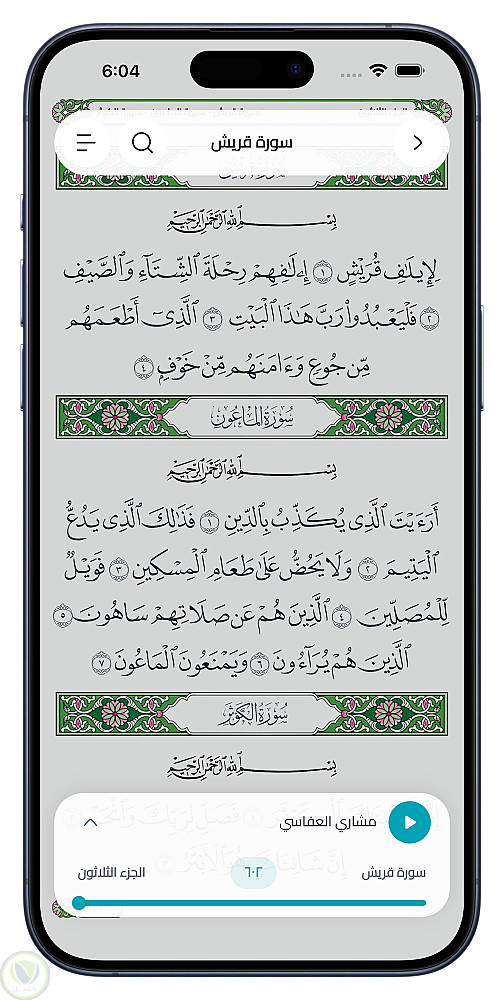 6:04
سورة قريش
بِسْمِ اللَّهِ الرَّحْمَٰنِ الرَّحِيمِ
لِإِيلَٰفِ قُرَيْشٍ ١ إِۦلَٰفِهِمْ رِحْلَةَ ٱلشِّتَآءِ وَٱلصَّيْفِ
٢ فَلْيَعْبُدُوا۟ رَبَّ هَٰذَا ٱلْبَيْتِ ٣ ٱلَّذِىٓ أَطْعَمَهُم
مِّن جُوعٍ وَءَامَنَهُم مِّنْ خَوْفٍۭ ٤
سُورَةُ الْمَاعُونِ
بِسْمِ اللَّهِ الرَّحْمَٰنِ الرَّحِيمِ
أَرَءَيْتَ ٱلَّذِى يُكَذِّبُ بِٱلدِّينِ ١ فَذَٰلِكَ ٱلَّذِى يَدُعُّ
ٱلْيَتِيمَ ٢ وَلَا يَحُضُّ عَلَىٰ طَعَامِ ٱلْمِسْكِينِ ٣ فَوَيْلٌ
لِّلْمُصَلِّينَ ٤ ٱلَّذِينَ هُمْ عَن صَلَاتِهِمْ سَاهُونَ ٥
ٱلَّذِينَ هُمْ يُرَآءُونَ ٦ وَيَمْنَعُونَ ٱلْمَاعُونَ ٧
سُورَةُ الْكَوْثَرِ
بِسْمِ اللَّهِ الرَّحْمَٰنِ الرَّحِيمِ
مشاري العفاسي
سورة قريش ٦٠٢ الجزء الثلاثون